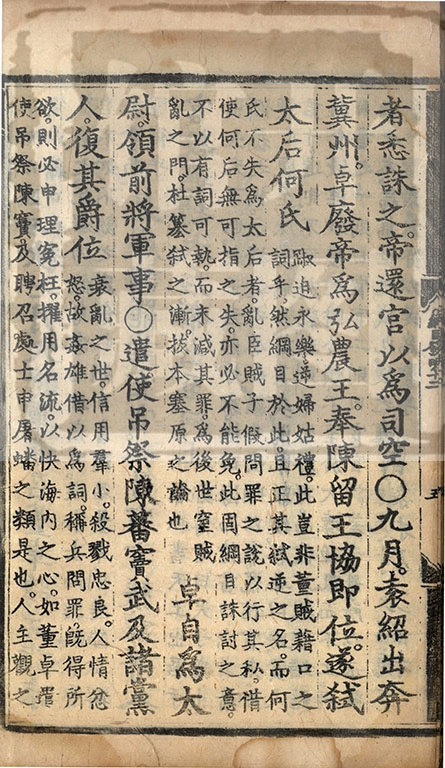 者悉誅之。帝還宮以爲司空○九月。袁紹出奔
冀州。卓廢帝爲弘農王。奉陳留王協即位。遂弒
太后何氏
踧迫永樂。逆婦姑禮。此豈非董賊藉口之
詞乎。然綱目於此。且正其弒逆之名。而何
氏不失爲太后者。亂臣賊子假問罪之說以行其私。借
使何后無可指之失。亦必不能免。此固綱目誅討之意。
不以有詞可執。而末減其罪。爲後世窒賊
亂之門。杜簒弒之漸。拔本塞原之論也
卓自爲太
尉。領前將軍事○遣使吊祭陳蕃竇武及諸黨
人。復其爵位
衰亂之世。信用羣小。殺戮忠良。人情忿
怒。故姦雄借以爲詞。稱兵問罪。旣得所
欲。則必申理寃枉。擢用名流。以快海內之心。如董卓遣
使吊祭陳竇。及聘召處士申屠蟠之類是也。人主觀之